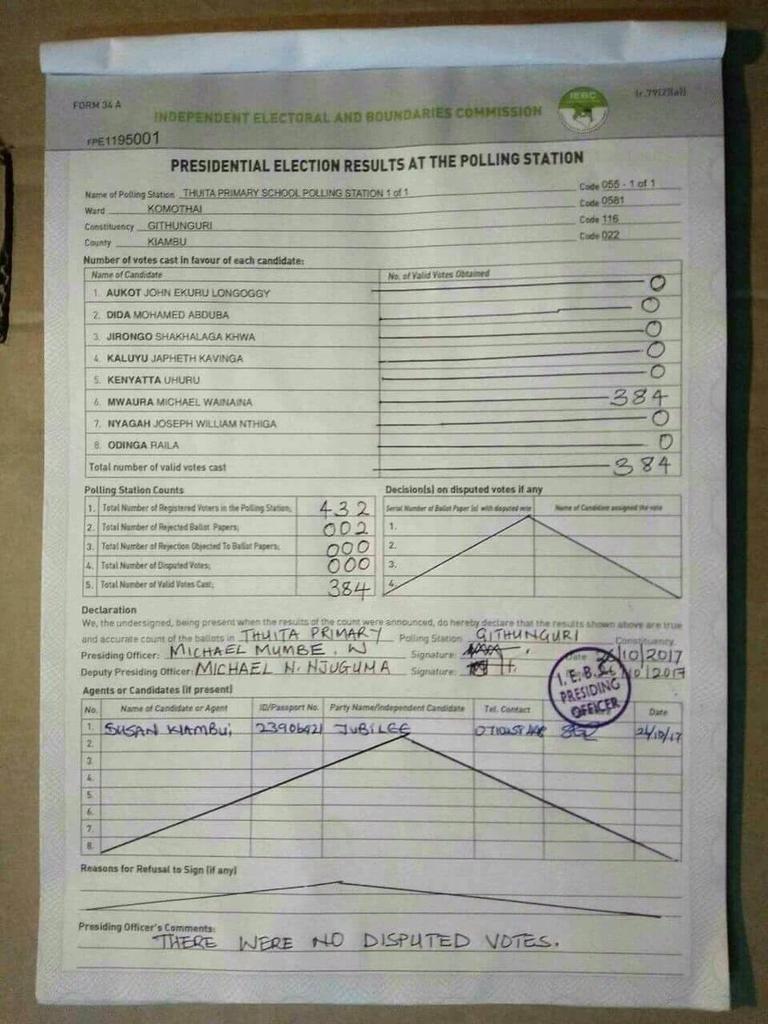 FORM 34 A
IEBC
(r.79(2)(a))
INDEPENDENT ELECTORAL AND BOUNDARIES COMMISSION
FPE1195001
PRESIDENTIAL ELECTION RESULTS AT THE POLLING STATION
Name of Polling Station THUITA PRIMARY SCHOOL POLLING STATION 1 of 1 Code 055 - 1 of 1
Ward KOMOTHAI Code 0581
Constituency GITHUNGURI Code 116
County KIAMBU Code 022
Number of votes cast in favour of each candidate:
Name of Candidate No. of Valid Votes Obtained
1. AUKOT JOHN EKURU LONGOGGY 0
2. DIDA MOHAMED ABDUBA 0
3. JIRONGO SHAKHALAGA KHWA 0
4. KALUYU JAPHETH KAVINGA 0
5. KENYATTA UHURU 0
6. MWAURA MICHAEL WAINAINA 384
7. NYAGAH JOSEPH WILLIAM NTHIGA 0
8. ODINGA RAILA 0
Total number of valid votes cast 384
Polling Station Counts Decision(s) on disputed votes if any
Serial Number of Ballot Paper (s) with disputed vote Name of Candidate assigned the vote
1. Total Number of Registered Voters in the Polling Station; 432 1.
2. Total Number of Rejected Ballot Papers; 002 2.
3. Total Number of Rejection Objected To Ballot Papers; 000 3.
4. Total Number of Disputed Votes; 000 4.
5. Total Number of Valid Votes Cast; 384
Declaration
We, the undersigned, being present when the results of the count were announced, do hereby declare that the results shown above are true
and accurate count of the ballots in THUITA PRIMARY Polling Station GITHUNGURI Constituency.
Presiding Officer: MICHAEL MUMBE. W Signature: Date 26/10/2017
Deputy Presiding Officer: MICHAEL N. NJUGUMA Signature: /10/2017
I.E.B.C
PRESIDING
OFFICER
Agents or Candidates (if present)
No. Name of Candidate or Agent ID/Passport No. Party Name/Independent Candidate Tel. Contact Date
1. SUSAN WAMBUI JUBILEE /10/17
2.
3.
4.
5.
6.
7.
8.
Reasons for Refusal to Sign (if any)
Presiding Officer's Comments:
THERE WERE NO DISPUTED VOTES.